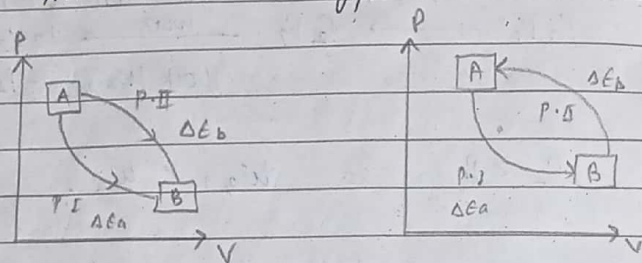 P
A
P.II
ΔEb
B
P.I
ΔEa
V
P
A
ΔEb
P.II
B
P.I
ΔEa
V